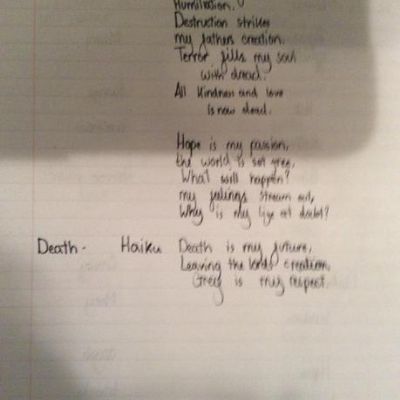 Humiliation.
Destruction strikes
my fathers creation.
Terror fills my soul
with dread.
All kindness and love
is now dead.
Hope is my passion,
the world is set free,
What will happen?
my feelings stream out,
Why is my life at doubt?
Death - Haiku Death is my future,
Leaving the lords creation,
Grey is my respect.